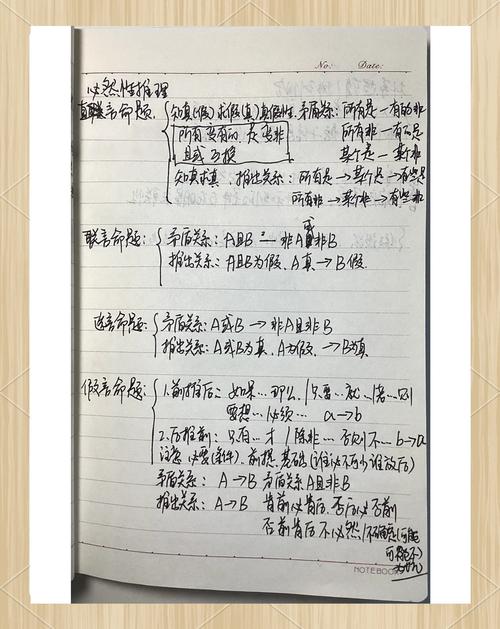 No: Date:
必然性推理
直言命题: 知真(假)求假(真)真假性.矛盾关系: 所有是—有的非
所有变有的,是变非 所有非—有的是
且或互换 某个是—某个非
知真求真.推出关系: 所有是→某个是→有些是
所有非→某个非→有些非
联言命题: 矛盾关系: A且B — 非A或非B
推出关系: A且B为假, A真→B假.
选言命题: 矛盾关系: A或B→非A且非B
推出关系: A或B为真, A为假, →B为真
假言命题: 1.前推后: 如果…那么/只要…就/若…则
要想…必须… a→b
2.后推前: 只有…才/除非…否则不… b→a
注意 必要(条件).前提.基础(谁必不可少谁放后)
矛盾关系: A→B 矛盾关系A且非B
推出关系: A→B 肯前必肯后.否后必否前
否前肯后不必然/不确定(可能
可能不)
NOTEBOOK